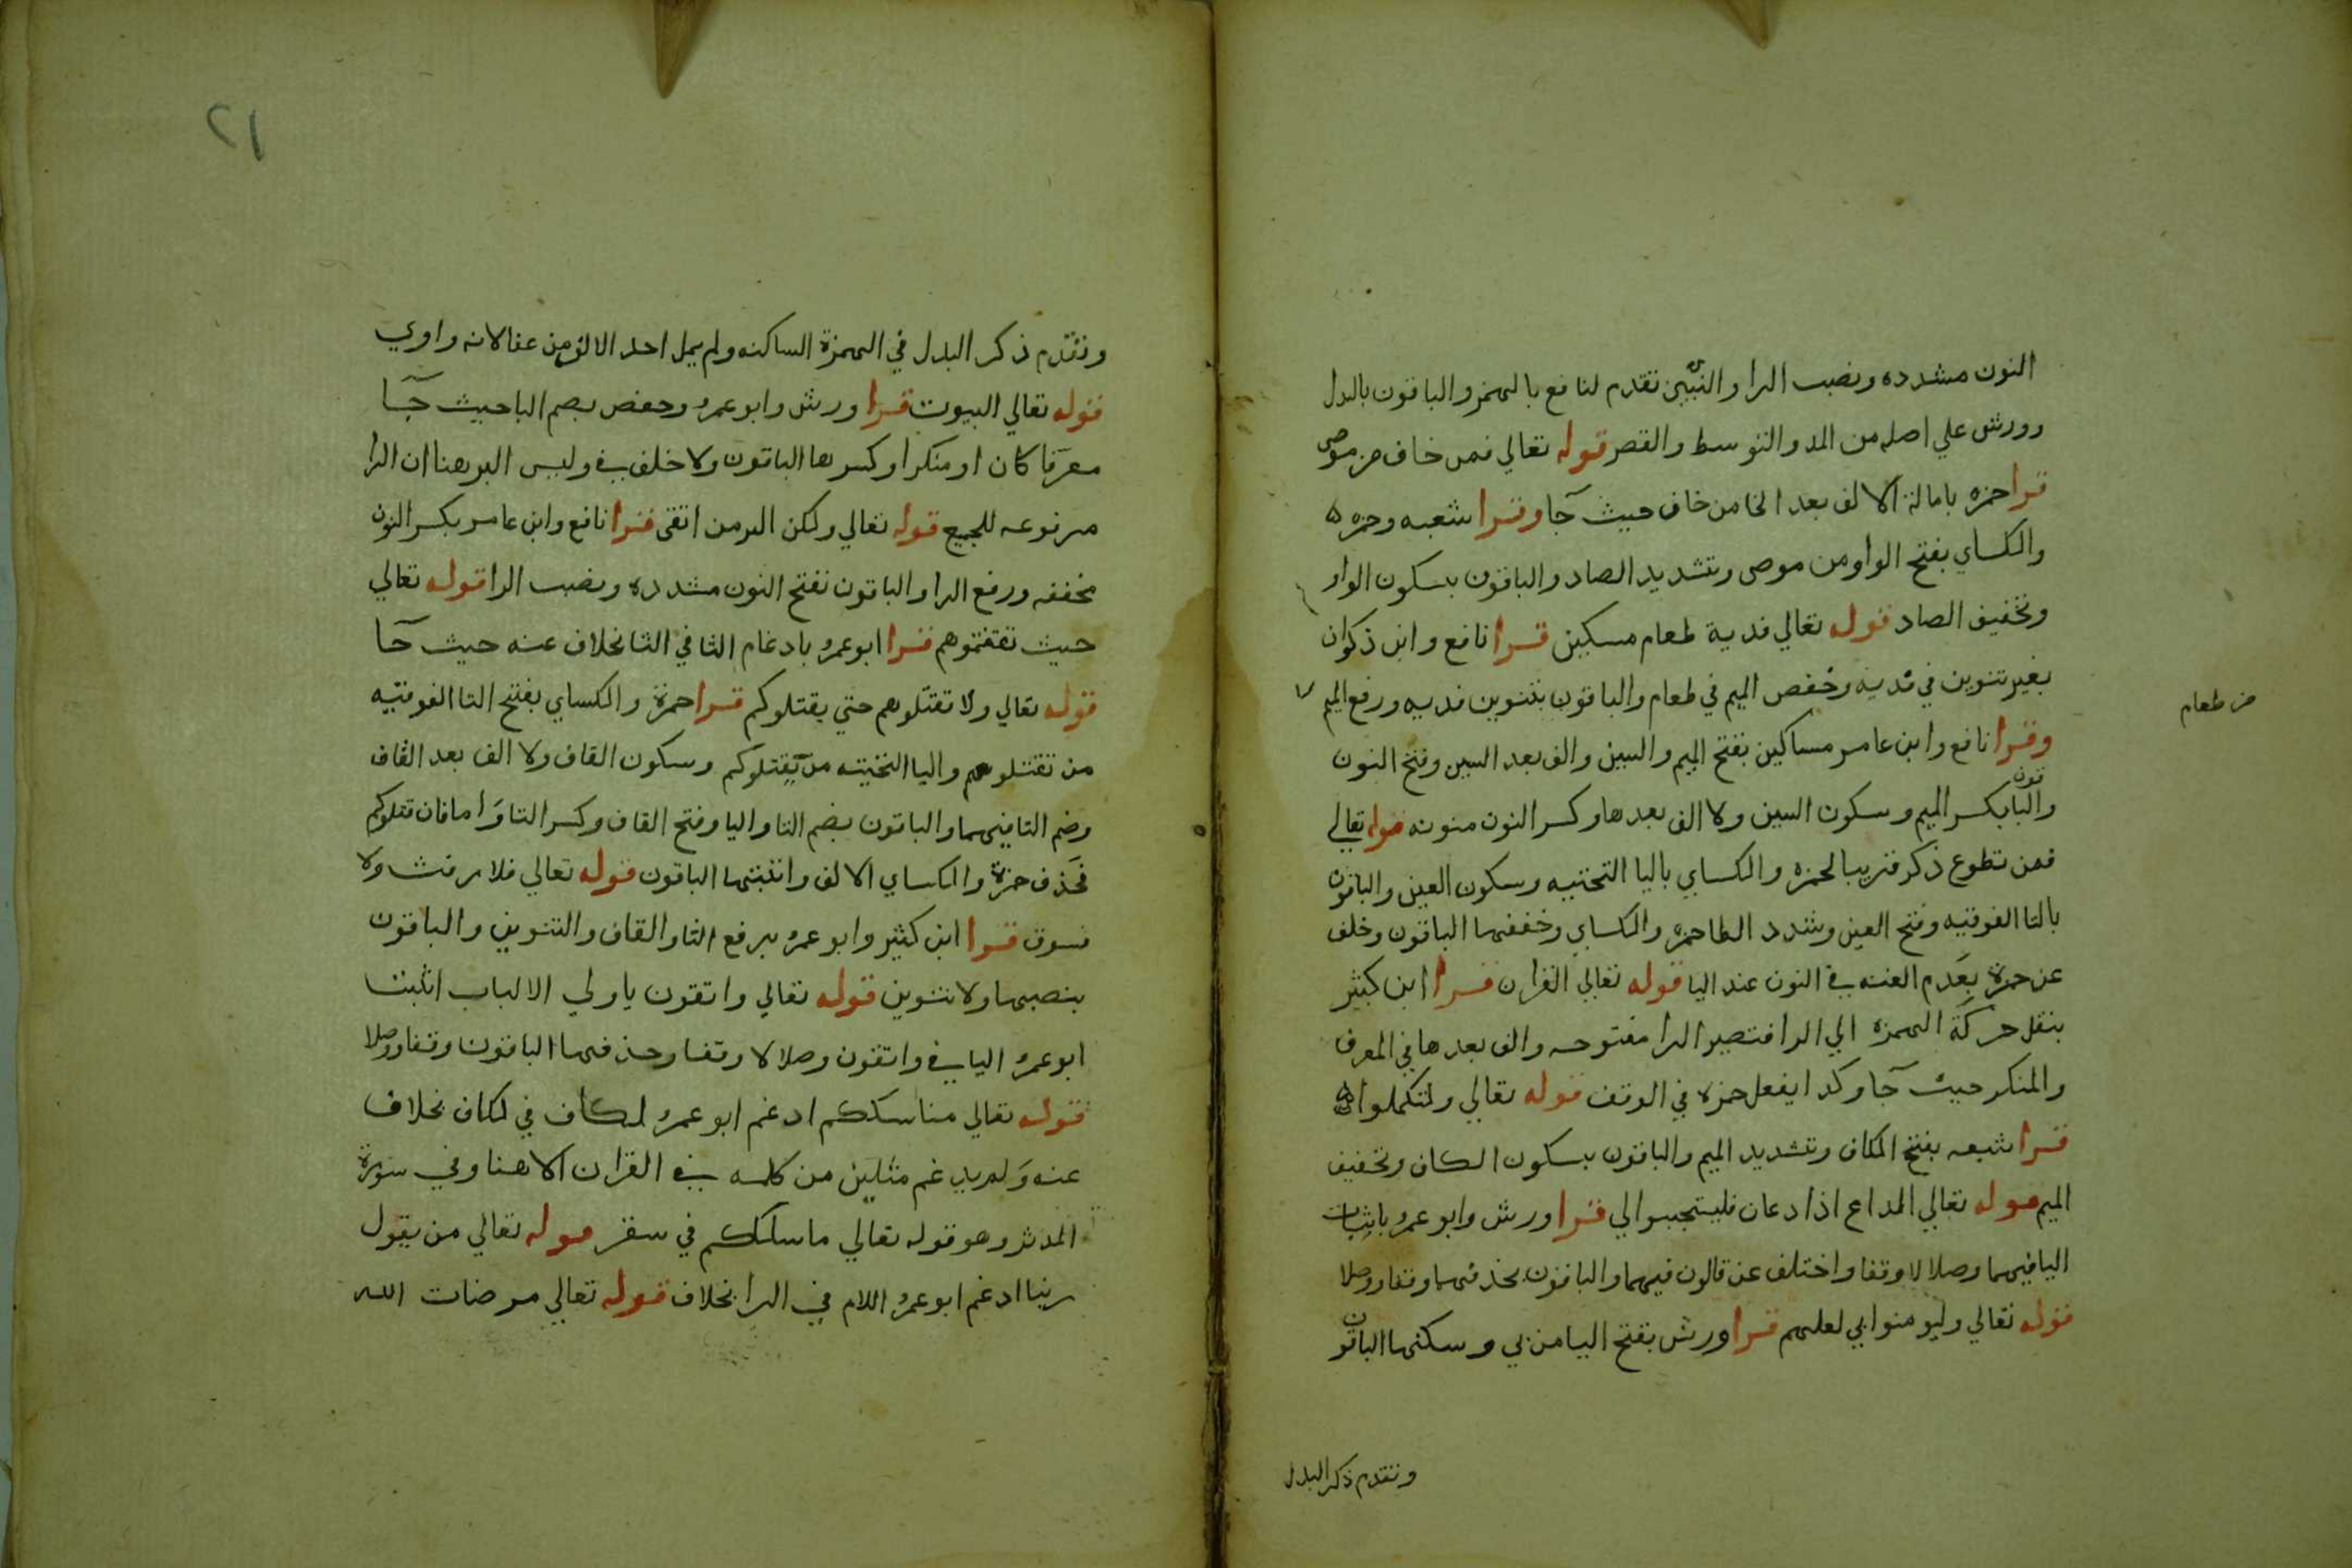 النون مشدده ونصب الرا والنبيين تقدم لنافع بالهمز والباقون بالبدل
وورش علي اصله من المد والتوسط والقصر قوله تعالي فمن خاف من موص
قرا حمزه بامالة الالف بعد الخا من خاف حيث جا وقرا شعبه وحمزه
والكساي بفتح الواو من موص وتشديد الصاد والباقون بسكون الواو
وتخفيف الصاد قوله تعالي فدية طعام مسكين قرا نافع وابن ذكوان
بغير تنوين في فديه وخفض الميم في طعام والباقون بتنوين فديه ورفع الميم
من طعام
وقرا نافع وابن عامر مساكين بفتح الميم والسين والف بعد السين وفتح النون
والباقون بكسر الميم وسكون السين ولا الف بعدها وكسر النون منونه قوله تعالي
فمن تطوع ذكر قريبا لحمزه والكساي باليا التحتيه وسكون العين والباقون
بالتا الفوقيه وفتح العين وشدد الطا حمزه والكساي وخففها الباقون وخلف
عن حمزة بعدم الغنه في النون عند اليا قوله تعالي القران قرا ابن كثير
بنقل حركة الهمزه الي الرا فتصير الرا مفتوحه والف بعدها في المعرف
والمنكر حيث جا وكذا يفعل حمزه في الوقف قوله تعالي ولتكملوا
قرا شعبه بفتح الكاف وتشديد الميم والباقون بسكون الكاف وتخفيف
الميم قوله تعالي الداع اذا دعان فليستجيبوا لي قرا ورش وابو عمرو باثبات
اليا فيهما وصلا لا وقفا واختلف عن قالون فيهما والباقون بحذفهما وقفا ووصلا
قوله تعالي وليومنوا بي لعلهم قرا ورش بفتح اليا من بي وسكنها الباقون
وتقدم ذكر البدل
٢١
وتقدم ذكر البدل في الهمزة الساكنه ولم يمل احد الالف من عفا لانه واوي
قوله تعالي البيوت قرا ورش وابو عمرو وحفص بضم البا حيث جا
معرفا كان او منكرا وكسرها الباقون ولا خلف في وليس البر هنا ان الرا
مرفوعه للجميع قوله تعالي ولكن البر من اتقى قرا نافع وابن عامر بكسر النون
مخففه ورفع الرا والباقون بفتح النون مشدده ونصب الرا قوله تعالي
حيث ثقفتموهم قرا ابو عمرو بادغام الثا في الثا بخلاف عنه حيث جا
قوله تعالي ولا تقتلوهم حتي يقتلوكم قرا حمزة والكساي بفتح التا الفوقيه
من تقتلوهم واليا التحتيه من يقتلوكم وسكون القاف ولا الف بعد القاف
وضم التا فيهما والباقون بضم التا واليا وفتح القاف وكسر التا واما فان قتلوكم
فحذف حمزة والكساي الالف واثبتها الباقون قوله تعالي فلا رفث ولا
فسوق قرا ابن كثير وابو عمرو برفع الثا والقاف والتنوين والباقون
بنصبهما ولا تنوين قوله تعالي واتقون ياولي الالباب اثبت
ابو عمرو اليا في واتقون وصلا لا وقفا وحذفها الباقون وقفا ووصلا
قوله تعالي مناسككم ادغم ابو عمرو الكاف في الكاف بخلاف
عنه ولم يدغم مثلين من كلمه في القران الا هنا وفي سورة
المدثر وهو قوله تعالي ما سلككم في سقر قوله تعالي من يقول
ربنا ادغم ابو عمرو اللام في الرا بخلاف قوله تعالي مرضات الله